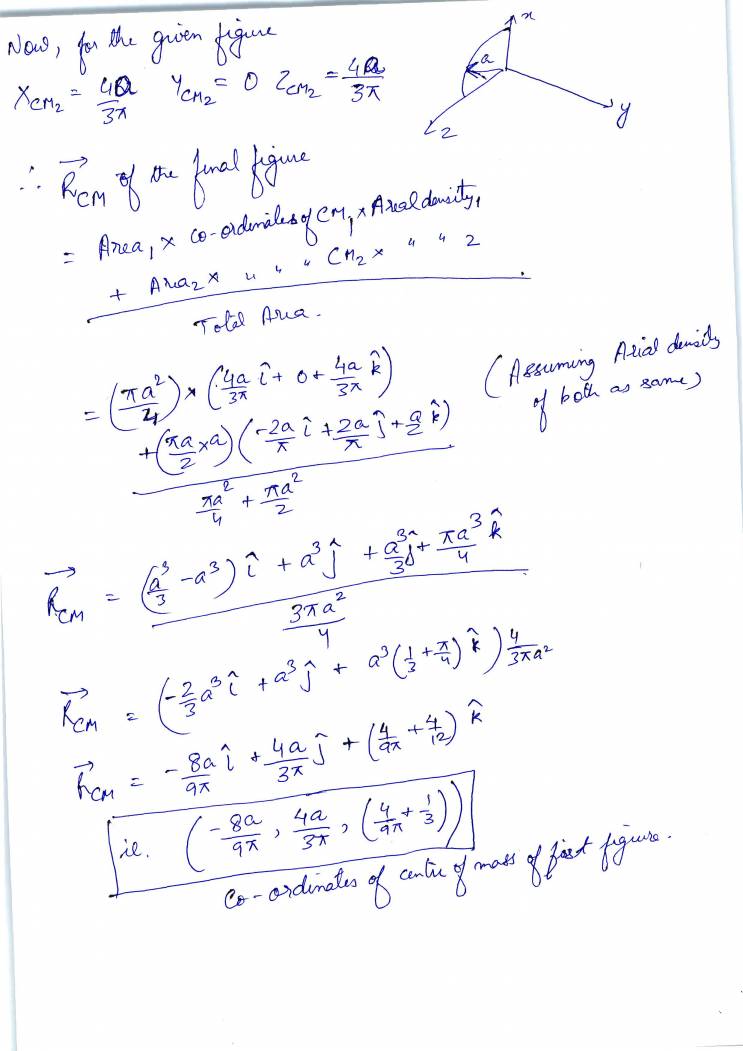 Now, for the given figure
X_CM₂ = 4a/3π   Y_CM₂ = 0   Z_CM₂ = 4a/3π
x
a
y
z
∴ R⃗_CM of the final figure
= Area₁ × co-ordinates of CM₁ × Areal density₁
+ Area₂ × " " " CM₂ × " " 2
Total Area.
= (πa²/4) × (4a/3π î + 0 + 4a/3π k̂)
(Assuming Arial density of both as same)
+ (πa/2 × a) (-2a/π î + 2a/π ĵ + a/2 k̂)
πa²/4 + πa²/2
R⃗_CM = (a³/3 - a³) î + a³ ĵ + a³/3 ĵ + πa³/4 k̂
3πa²/4
R⃗_CM = (-2/3 a³ î + a³ ĵ + a³(1/3 + π/4) k̂) 4/3πa²
R⃗_CM = -8a/9π î + 4a/3π ĵ + (4/9π + 4/12) k̂
ie. (-8a/9π, 4a/3π, (4/9π + 1/3))
Co-ordinates of centre of mass of first figure.